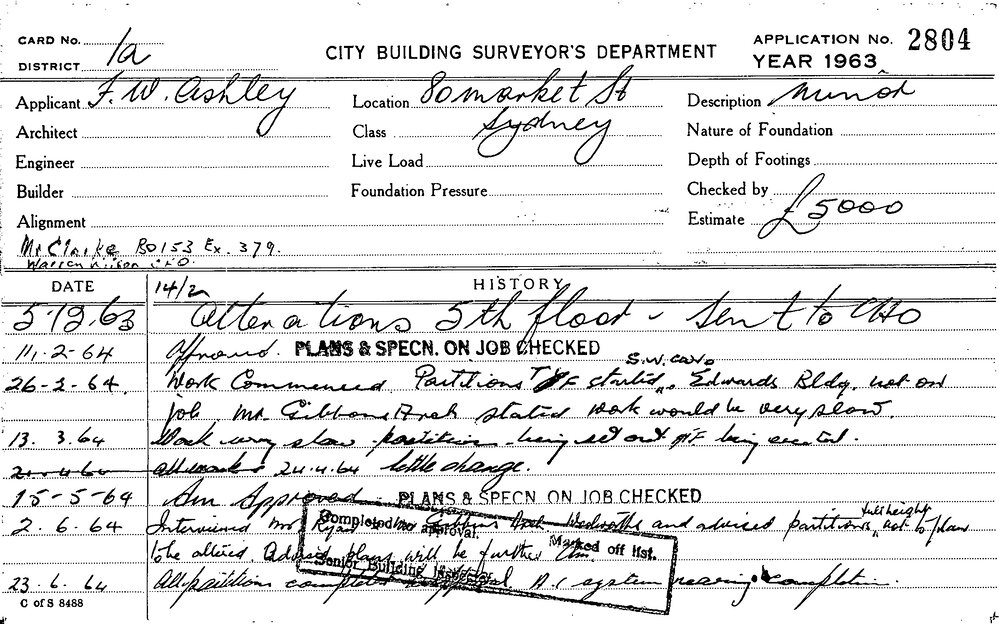 CARD No.
DISTRICT 1a
CITY BUILDING SURVEYOR'S DEPARTMENT
APPLICATION No. 2804
YEAR 1963
Applicant F. W. Ashley
Location 80 market St
Sydney
Description minor
Architect
Class
Nature of Foundation
Engineer
Live Load
Depth of Footings
Builder
Foundation Pressure
Checked by
Alignment
Estimate £5000
Mr Clarke BO153 Ex. 379.
Warren
DATE
14/2
HISTORY
5-12.63 Alterations 5th floor - Sent to CHO
11.2-64 Approved. PLANS & SPECN. ON JOB CHECKED
26-2-64. Work Commenced Partitions started S.W. Edwards Bldg. not on
job Mr Gibbons Arch stated work would be very slow.
13. 3.64 Work very slow partitions being set out being erected.
24.4.64 little change.
15-5-64 Am Approved PLANS & SPECN. ON JOB CHECKED
2. 6. 64 Interviewed Mr Ryan Gibbons Arch Woolworths and advised partitions full height not to plan
to be altered. Advised plans will be further Am.
Completed
approval.
Marked off list.
Senior Building Inspector
23. 6. 64 All partitions completed A.C system nearing completion.
C of S 8488